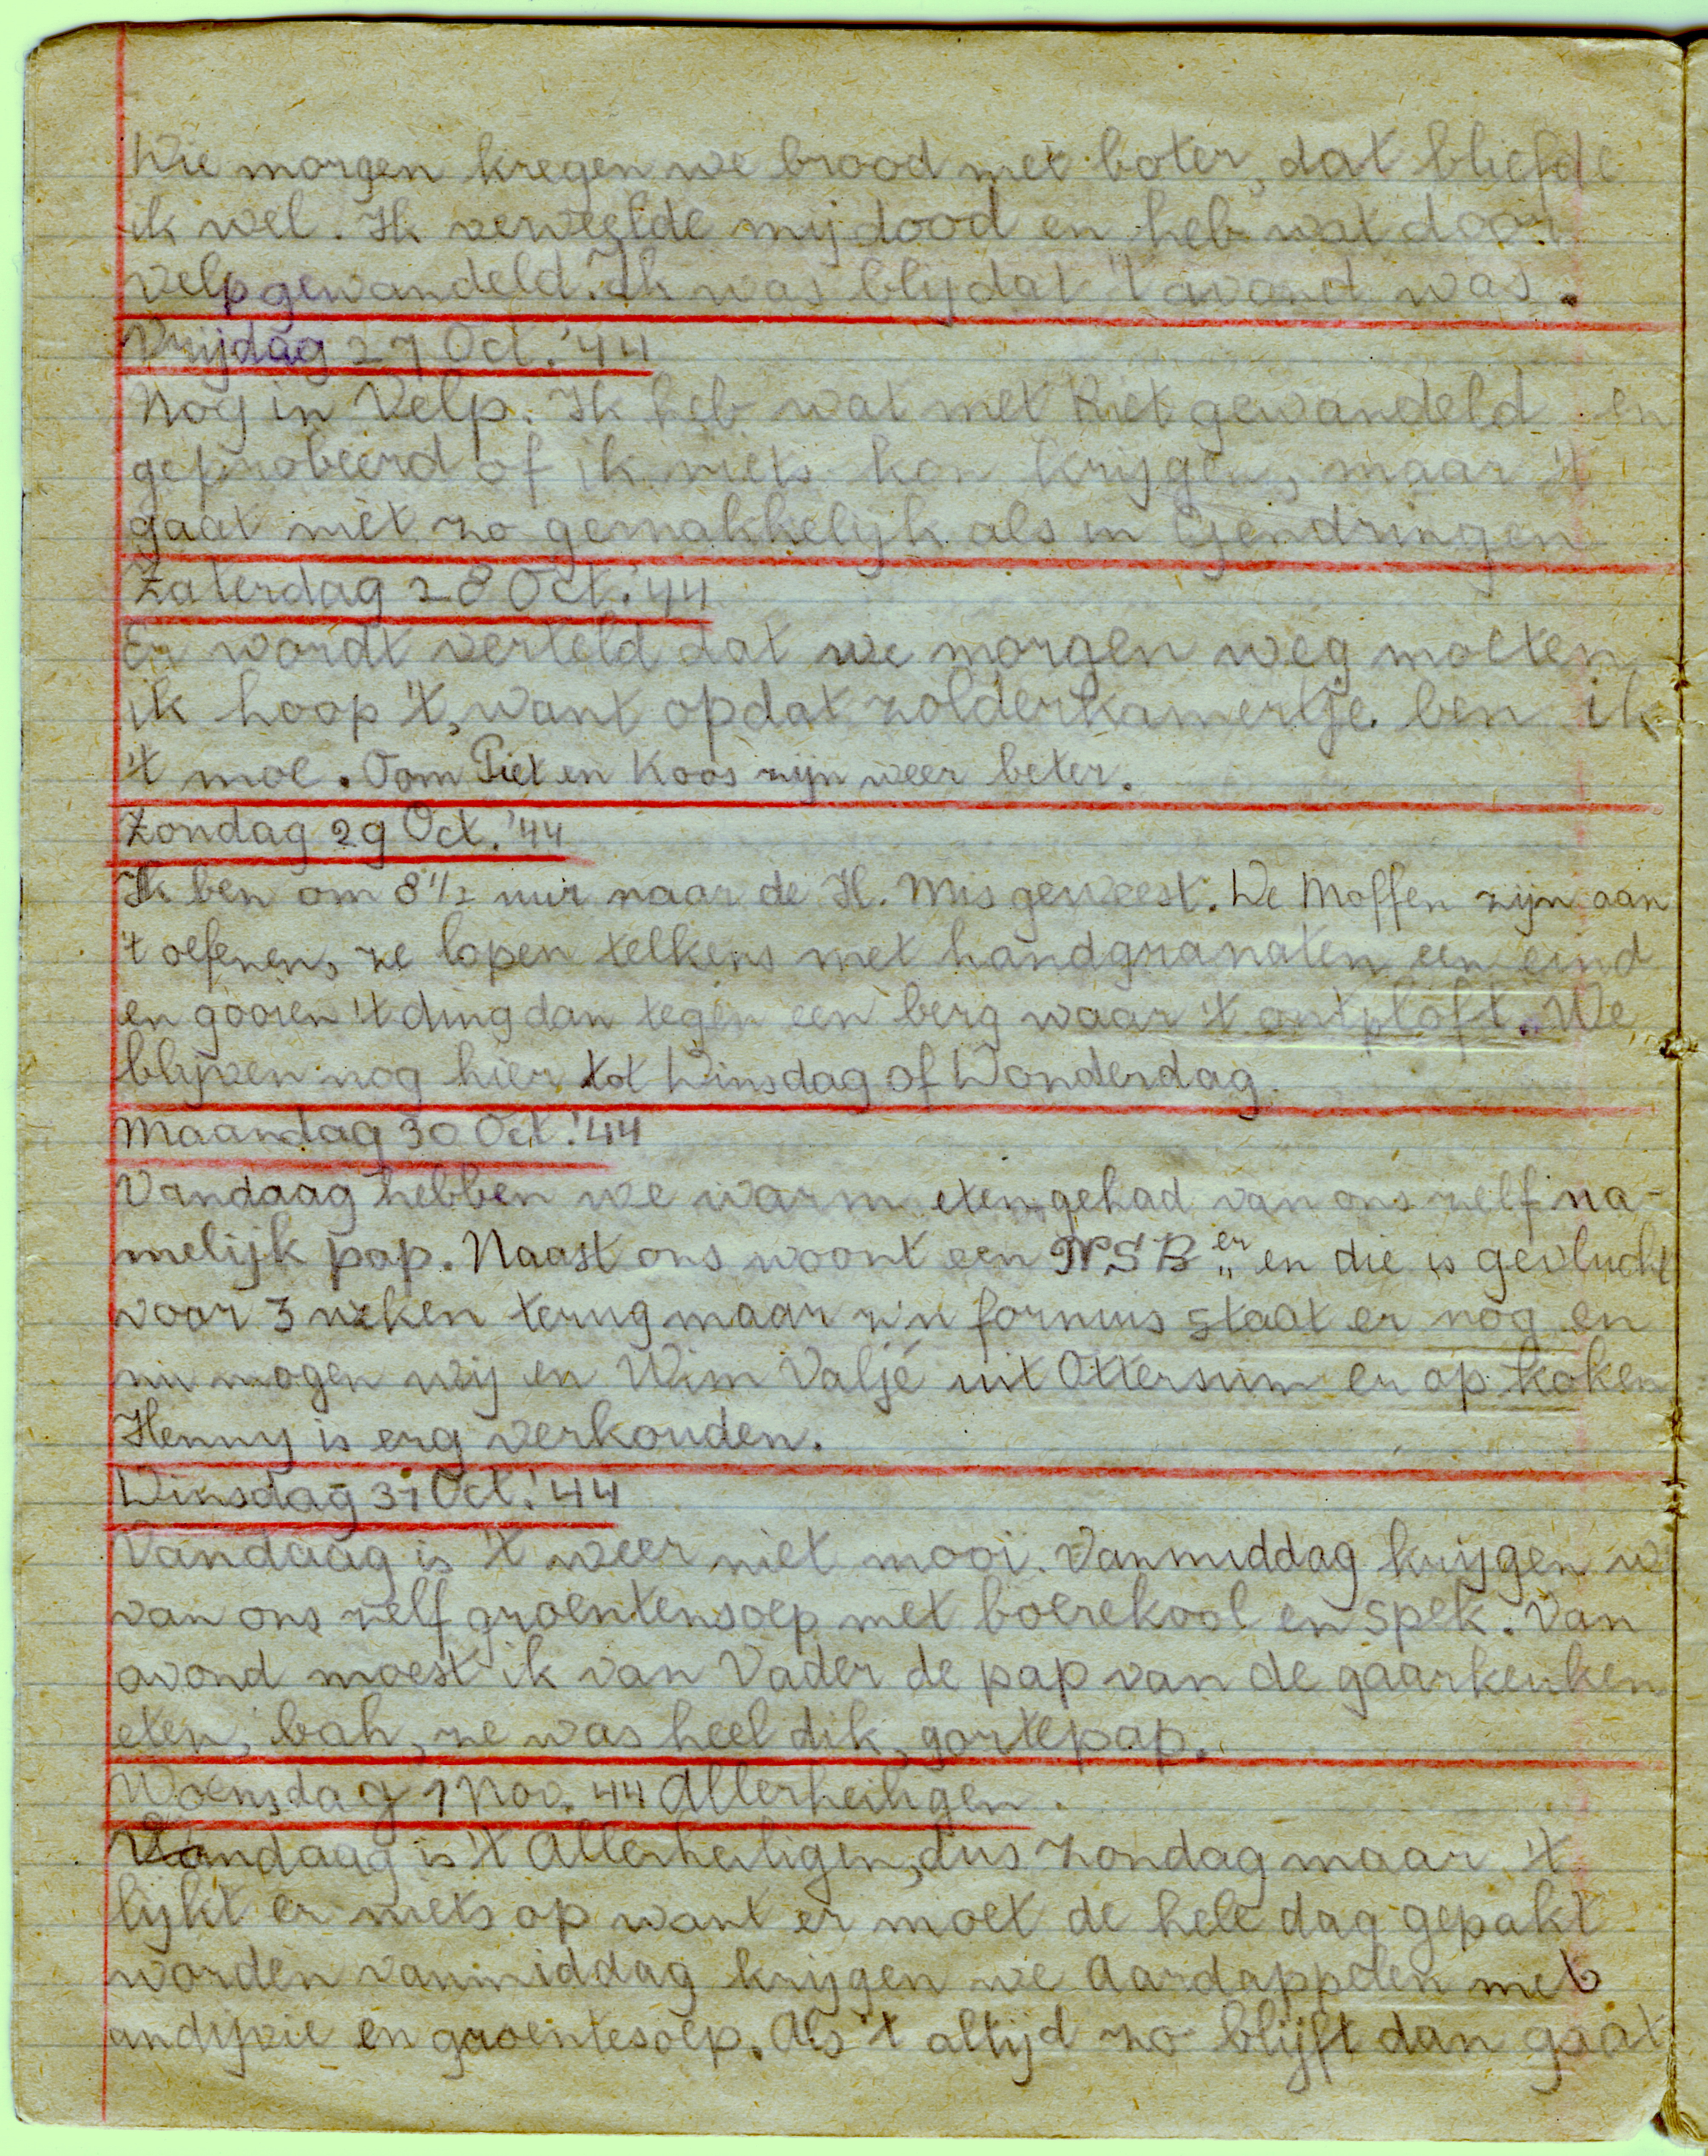 Die morgen kregen we brood met boter, dat bliefde
ik wel. Ik verveelde mij dood en heb wat door
Velp gewandeld. Ik was blij dat 't avond was.
Vrijdag 27 Oct. '44
Nog in Velp. Ik heb wat met Riet gewandeld en
geprobeerd of ik niets kon krijgen, maar 't
gaat niet zo gemakkelijk als in Gendringen
Zaterdag 28 Oct. '44
Er wordt verteld dat we morgen weg moeten
ik hoop 't, want op dat zolderkamertje ben ik
't moe. Oom Piet en Koos zijn weer beter.
Zondag 29 Oct. '44
Ik ben om 8 1/2 uur naar de H. Mis geweest. De Moffen zijn aan
't oefenen, ze lopen telkens met handgranaten een eind
en gooien 't ding dan tegen een berg waar 't ontploft. We
blijven nog hier tot Dinsdag of Donderdag.
Maandag 30 Oct. '44
Vandaag hebben we warm eten gehad van ons zelf na-
melijk pap. Naast ons woont een NSB"er en die is gevlucht
voor 3 weken terug maar z'n fornuis staat er nog en
nu mogen wij en Wim Valjé uit Ottersum er op koken
Henny is erg verkouden.
Dinsdag 31 Oct. '44
Vandaag is 't weer niet mooi. Vanmiddag krijgen w
van ons zelf groentensoep met boerekool en spek. Van
avond moest ik van Vader de pap van de gaarkeuken
eten, bah, ze was heel dik, gortepap.
Woensdag 1 Nov. 44 Allerheiligen.
Vandaag is 't Allerheiligen, dus zondag maar 't
lijkt er niets op want er moet de hele dag gepakt
worden vanmiddag krijgen we Aardappelen met
andijvie en groentesoep. Als 't altijd zo blijft dan gaat